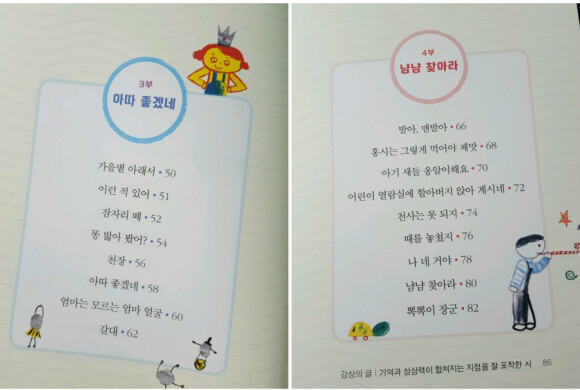 3부
아따 좋겠네
가을볕 아래서 • 50
이런 적 있어 • 51
잠자리 떼 • 52
똥 밟아 봤어? • 54
천장 • 56
아따 좋겠네 • 58
엄마는 모르는 엄마 얼굴 • 60
갈대 • 62
4부
냠냠 찾아라
발아, 맨발아 • 66
홍시는 그렇게 먹어야 제맛 • 68
아기 새들 옹알이해요 • 70
어린이 열람실에 할아버지 앉아 계시네 • 72
천사는 못 되지 • 74
때를 놓쳤지 • 76
나 네 거야 • 78
냠냠 찾아라 • 80
뽁뽁이 장군 • 82
감상의 글 | 기억과 상상력이 합쳐지는 지점을 잘 포착한 시 85